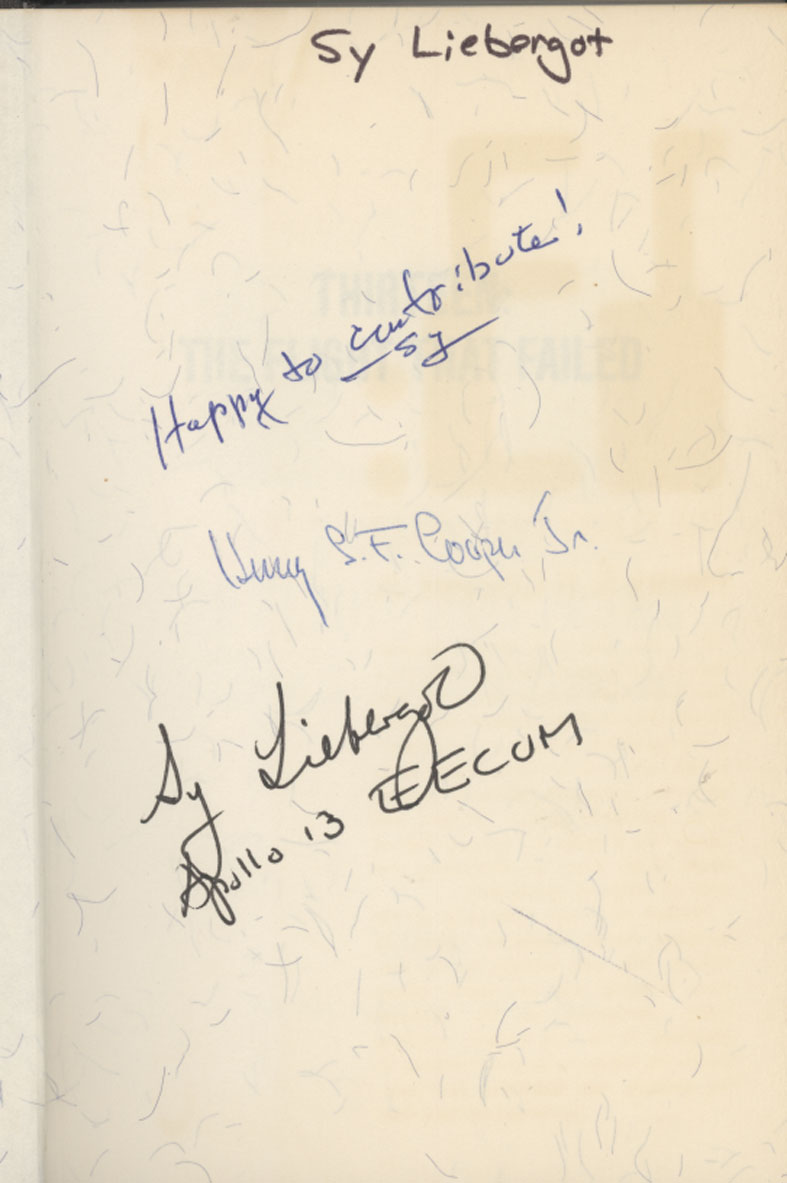 Sy Liebergot
Happy to contribute!
Sy
Henry S.F. Cooper Jr.
Sy Liebergot
Apollo 13 EECOM
THIRTEEN:
THE FLIGHT THAT FAILED
13